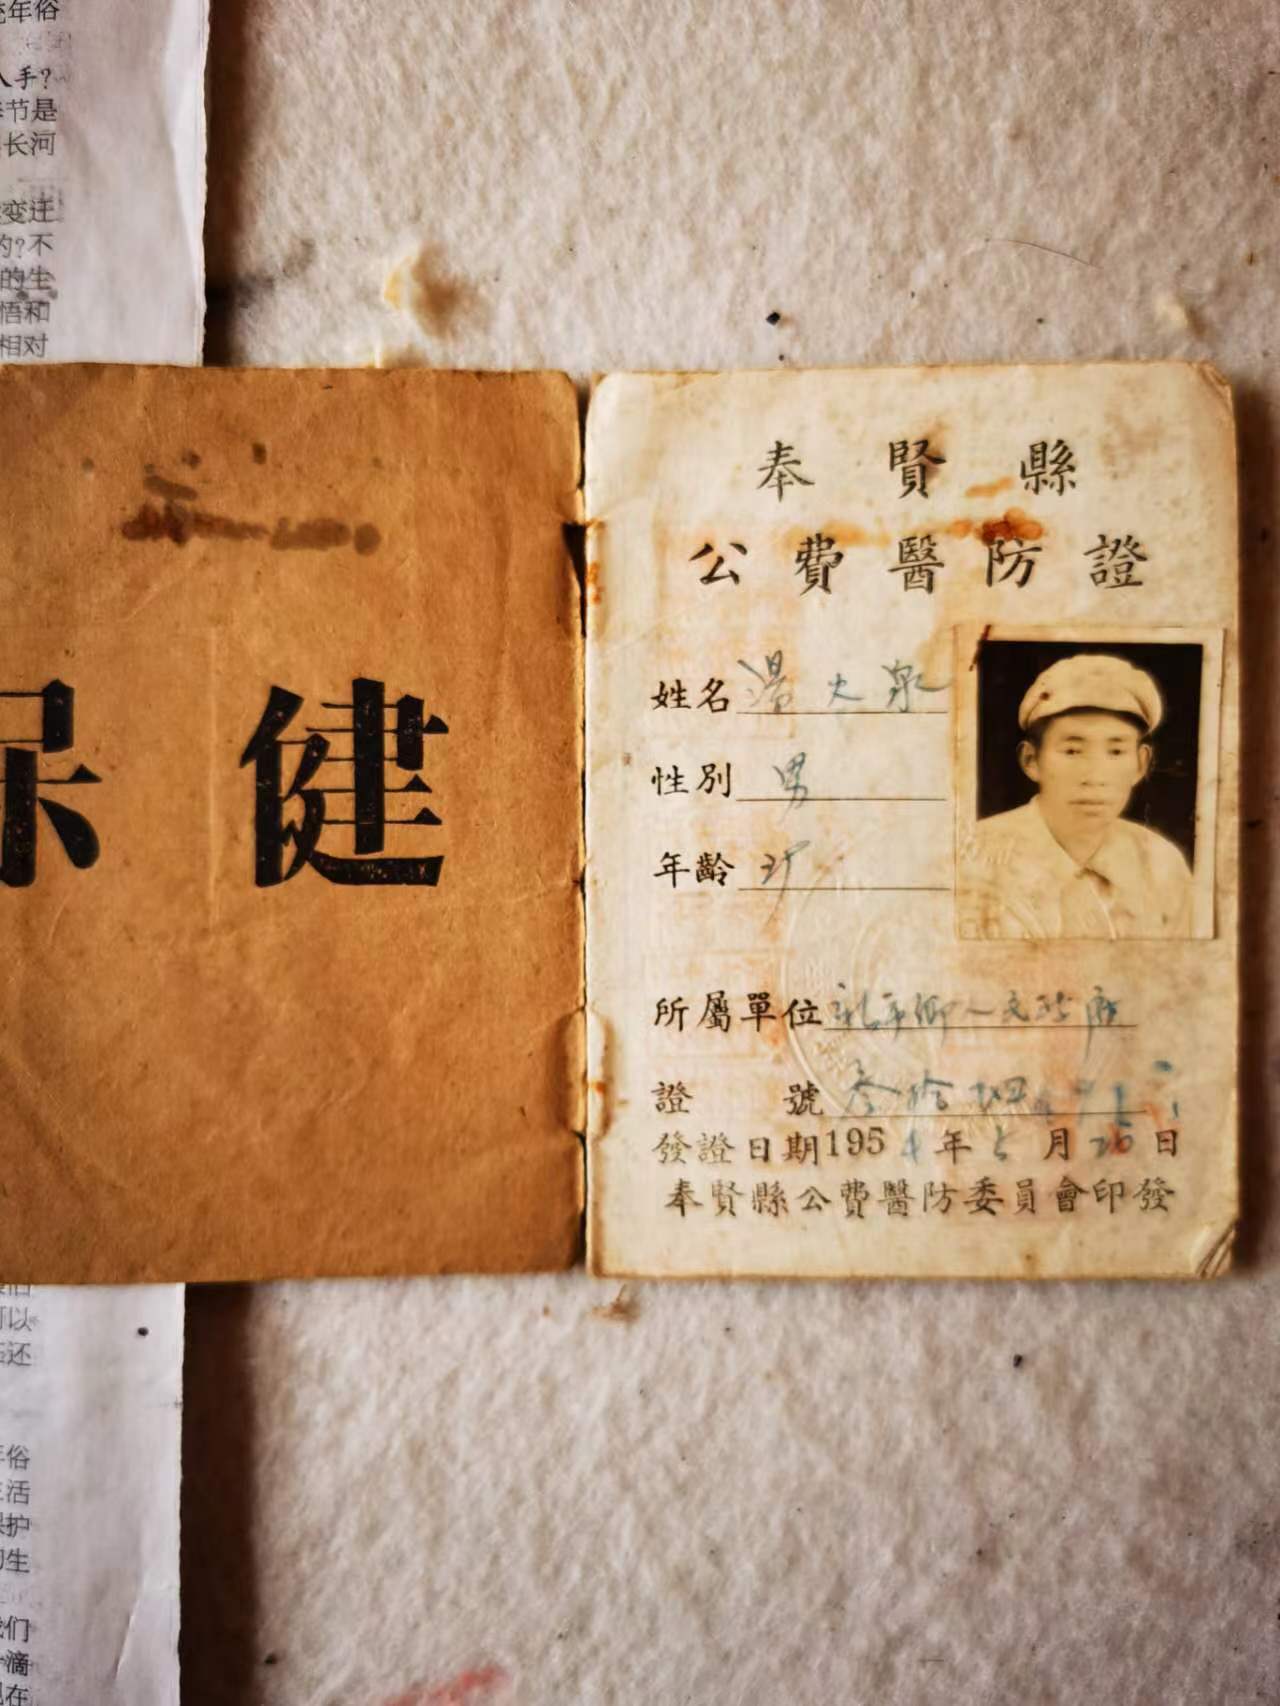 年俗
人手?
节是
长河
变迁
的?不
的生
悟和
相对
保健
奉賢縣
公費醫防證
姓名 湯火泉
性別 男
年齡
所屬單位 新平鄉人民政府
證號 叁拾肆
發證日期1954年5月26日
奉賢縣公費醫防委員會印發
可以
还
年俗
生活
保护
生
我们
滴
现在